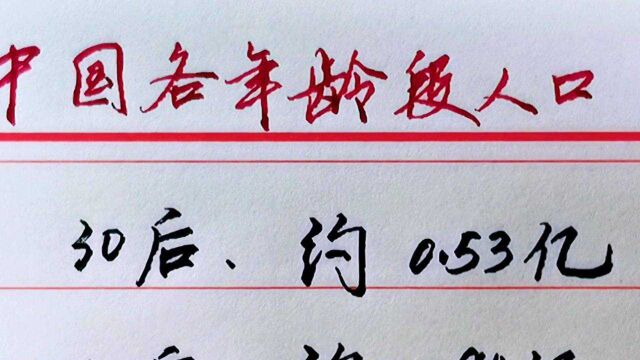 中国各年龄段人口
30后、约 0.53亿